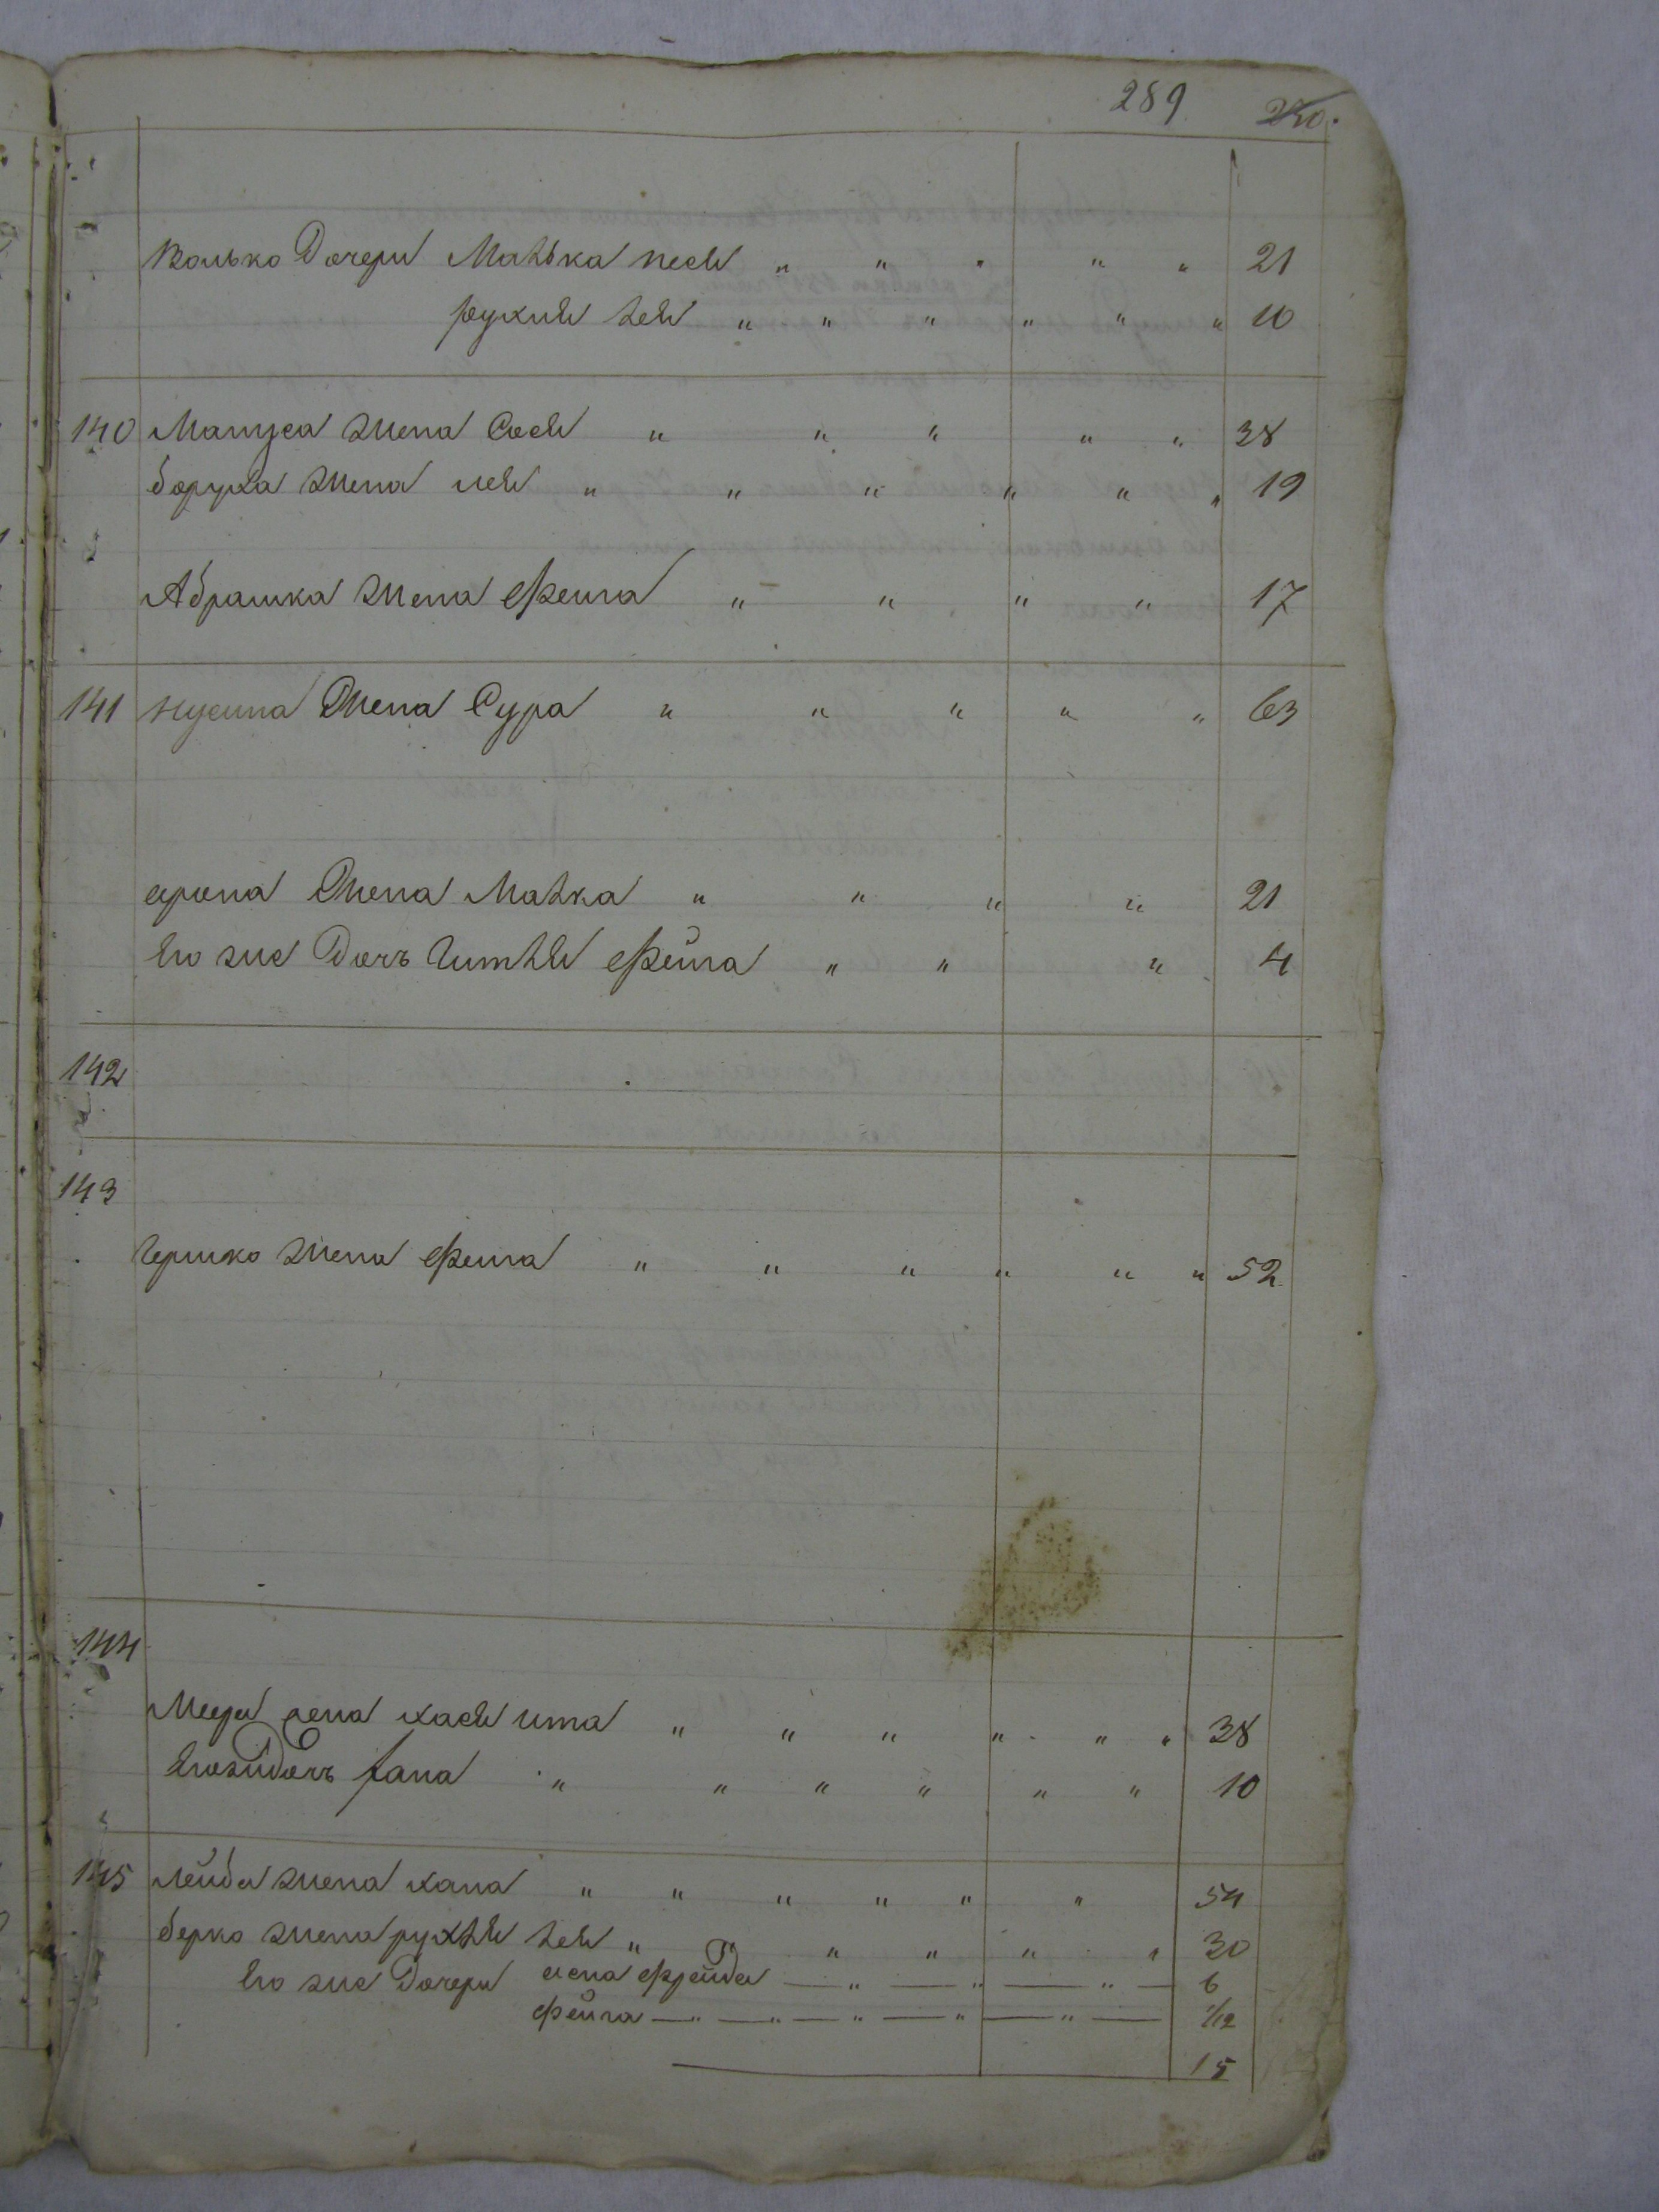 289 240.
Волько Дочери Малька песя " " " " " 21
рухля лея " " " " " " 10
140 Мануса жена Сося " " " " " 38
боруха жена лея " " " " " " 19
Абрашка жена фейга " " " " 17
141 нусина жена Сура " " " " " 63
арона жена Малка " " " " 21
Его же Дочь Гитля фейга " " " 4
142
143
Гершко жена фейга " " " " " " 52
144
жена хася ита " " " " " " 38
Егоже Дочь хана " " " " " " 10
145 лейба жена хана " " " " " " 54
берко жена рухля лея " " " " " " 30
Его же Дочери фрейда — " — " — " — 6
фейга — " — " — " — " — " — 1/12
15